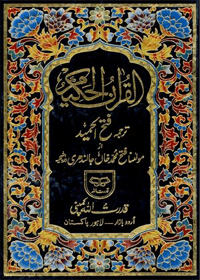 القرآن الحکیم
ترجمہ
فتح الحمید
از
مولٰنا فتح محمد خاں جالندھری
قدرت اللہ کمپنی
اردو بازار - لاہور پاکستان